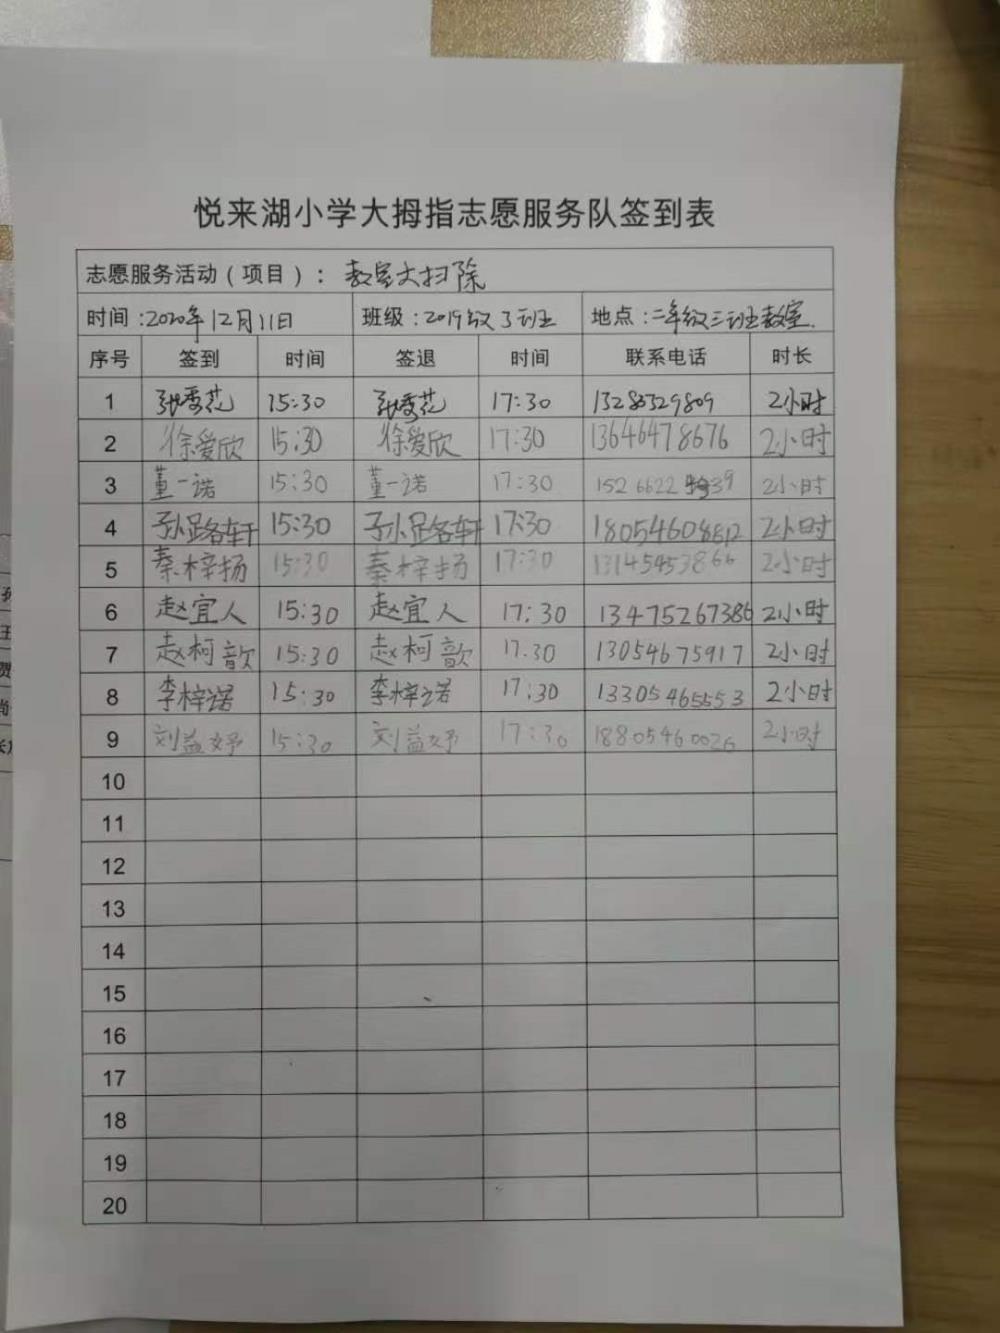 悦来湖小学大拇指志愿服务队签到表
志愿服务活动（项目）：教室大扫除
时间：2020年12月11日 班级：2019级3班 地点：二年级三班教室
序号 签到 时间 签退 时间 联系电话 时长
1 张秀花 15:30 张秀花 17:30 13280329809 2小时
2 徐爱欣 15:30 徐爱欣 17:30 13646478676 2小时
3 董一诺 15:30 董一诺 17:30 1526622 39 2小时
4 孙路轩 15:30 孙路轩 17:30 18054608812 2小时
5 秦梓扬 15:30 秦梓扬 17:30 13145453866 2小时
6 赵宜人 15:30 赵宜人 17:30 13475267386 2小时
7 赵柯歆 15:30 赵柯歆 17:30 13054675917 2小时
8 李梓诺 15:30 李梓诺 17:30 13305465553 2小时
9 刘益妤 15:30 刘益妤 17:30 18805460026 2小时
10
11
12
13
14
15
16
17
18
19
20